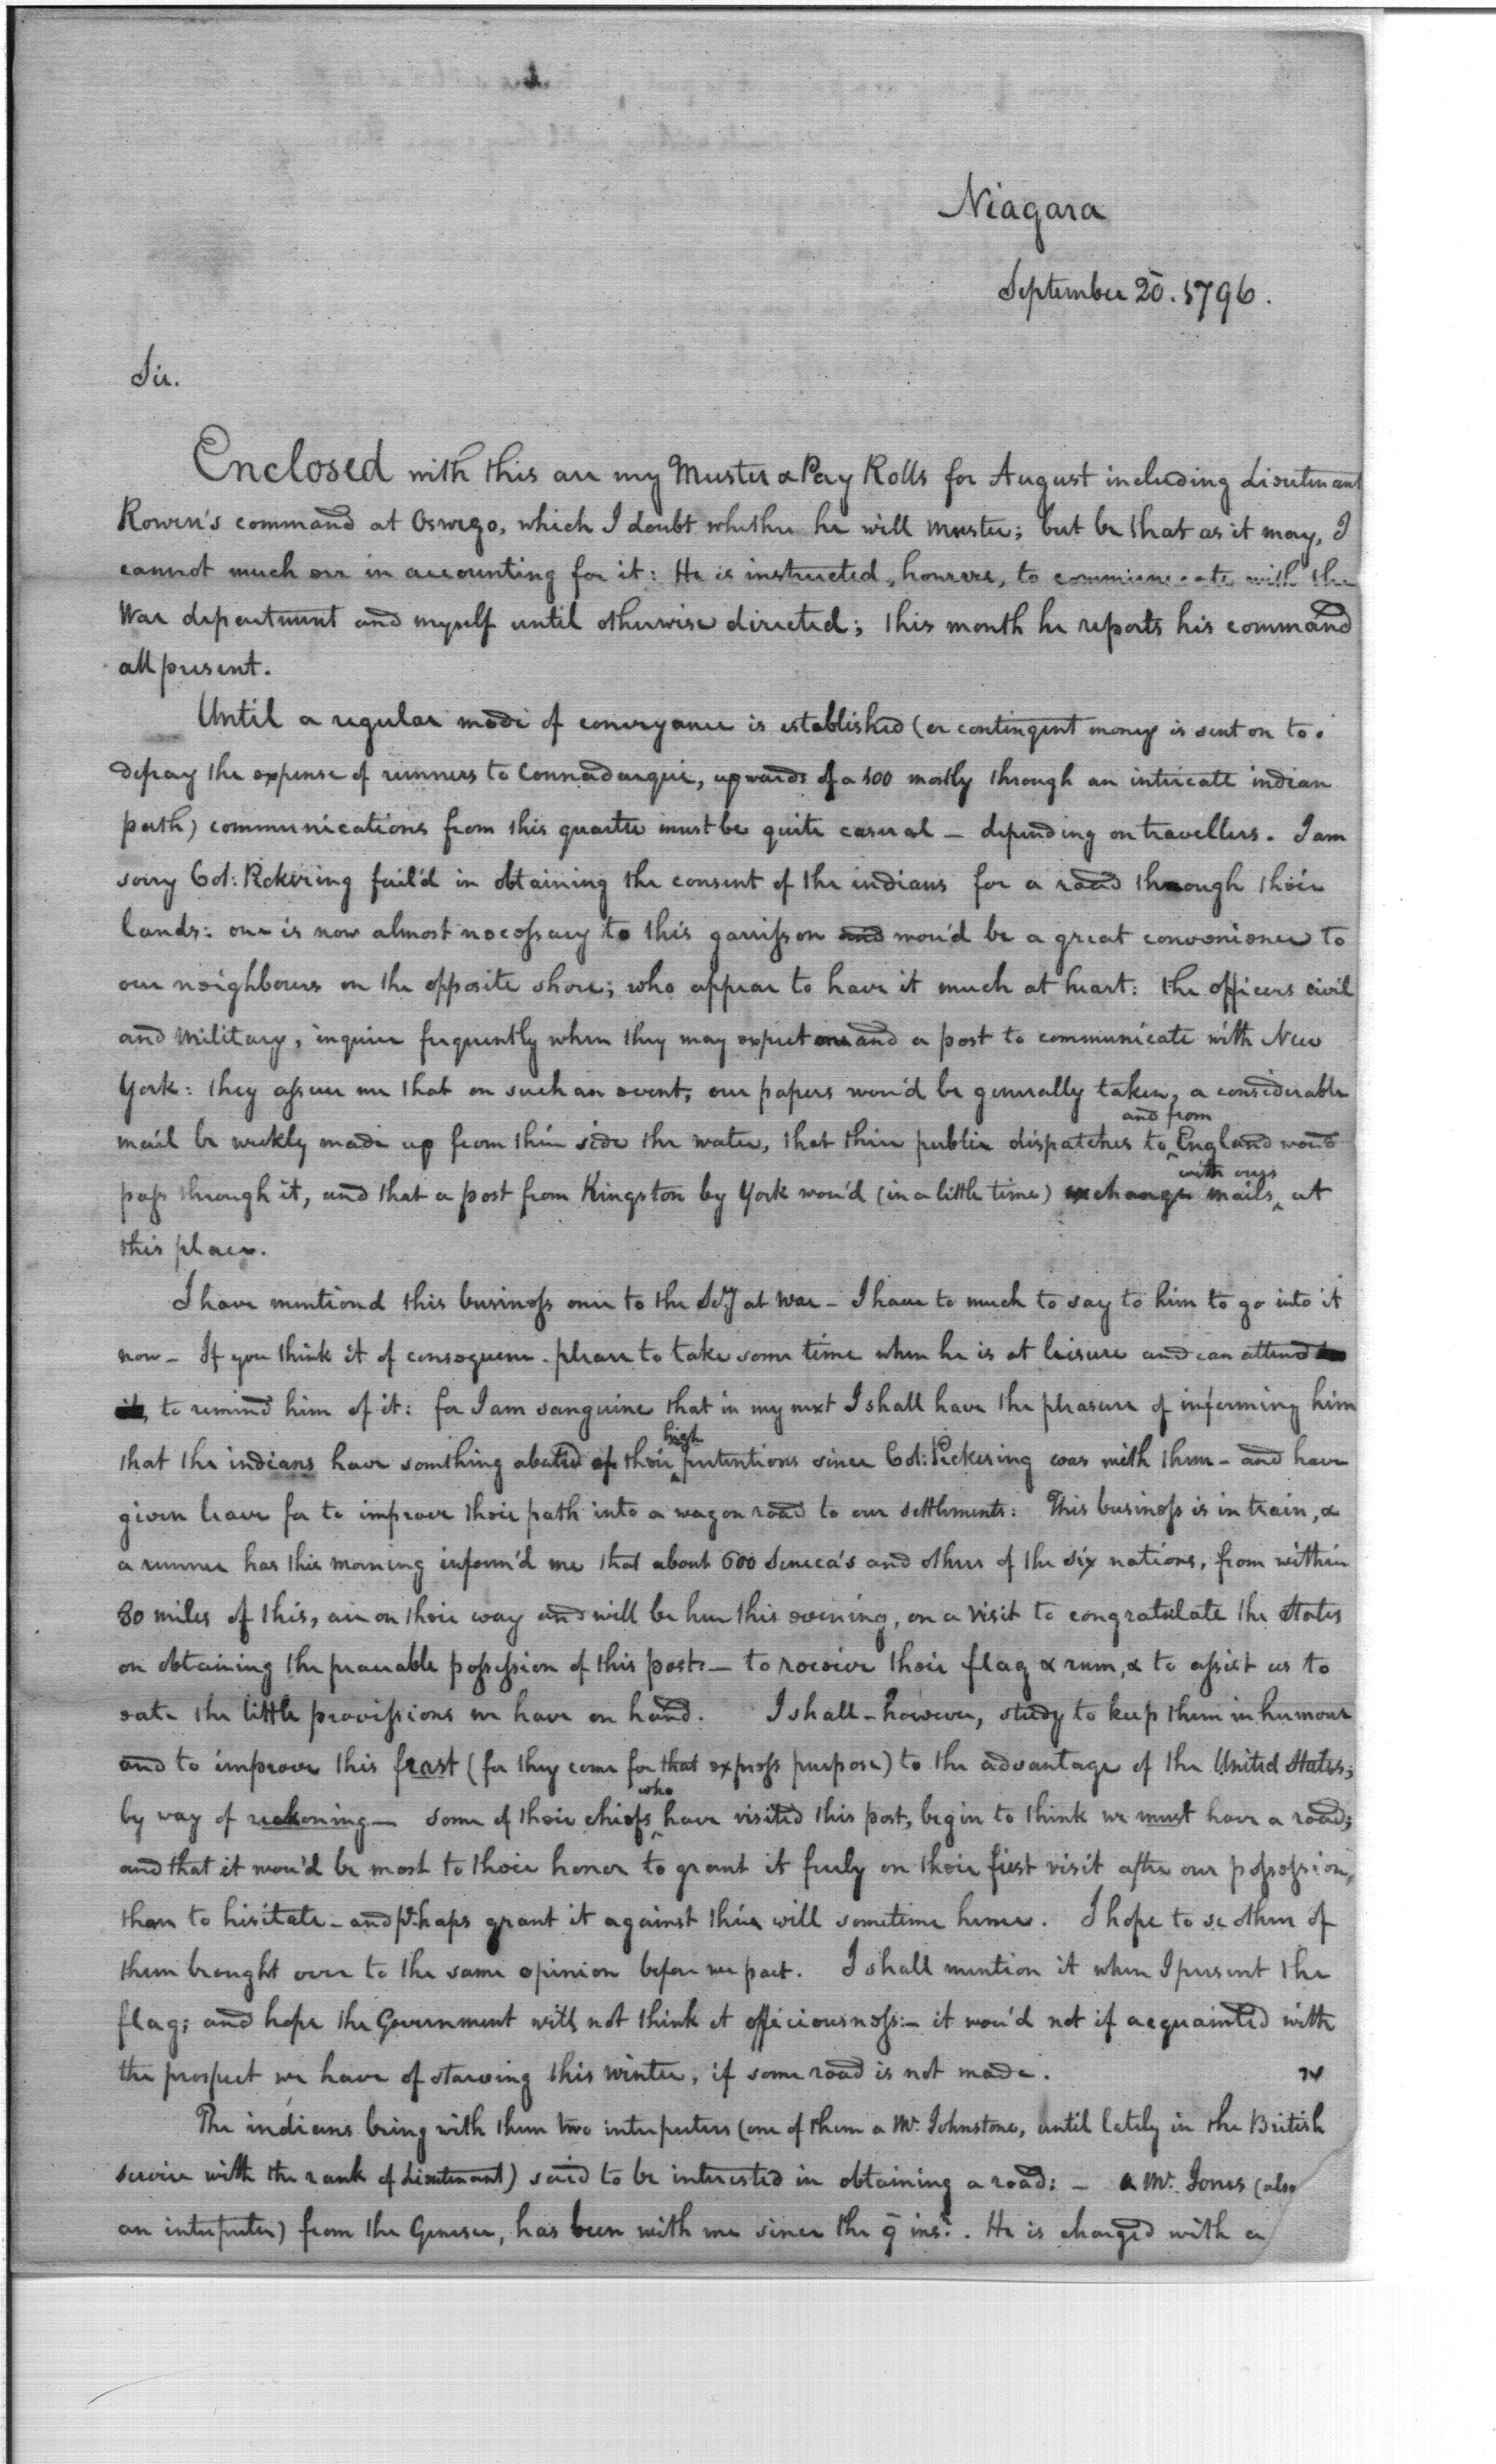 Niagara
September 20. 1796.
Sir.
Enclosed with this are my Muster & Pay Rolls for August including Lieutenant
Rowen's command at Oswego, which I doubt whether he will muster; but be that as it may, I
cannot much err in accounting for it: He is instructed, however, to communicate with the
War department and myself until otherwise directed; this month he reports his command
all present.
Until a regular mode of conveyance is established (or contingent money is sent on to
defray the expense of runners to Connadarqui, upwards of a 100 mostly through an intricate indian
path) communications from this quarter must be quite casual – depending on travellers. I am
sorry Col: Pickering fail'd in obtaining the consent of the indians for a road through their
lands: one is now almost necessary to this garrisson and wou'd be a great convenience to
our neighbours on the opposite shore; who appear to have it much at heart: the officers civil
and military, inquire frequently when they may expect one and a post to communicate with New
York: they assure me that on such an event, our papers wou'd be generally taken, a considerable
mail be weekly made up from their side the water, that their public dispatches to and from England woud
pass through it, and that a post from Kingston by York wou'd (in a little time) exchange mails with ours at
this place.
I have mentiond this business once to the Secy at War – I have to much to say to him to go into it
now – If you think it of consequence please to take some time when he is at leisure and can attend to
it, to remind him of it: for I am sanguine that in my next I shall have the pleasure of informing him
that the indians have somthing abated of their high pretentions since Col: Pickering was with them – and have
given leave for to improve their path into a wagon road to our settlments: This business is in train, &
a runner has this morning inform'd me that about 600 Seneca's and others of the six nations, from within
80 miles of this, are on their way and will be here this evening, on a visit to congratulate the States
on obtaining the peaceable possession of this post: – to receive their flag & rum, & to assist us to
eate the little provissions we have on hand. I shall – however, study to keep them in humour
and to improve this feast (for they come for that express purpose) to the advantage of the United States;
by way of reckoning – some of their chiefs who have visited this post, begin to think we must have a road;
and that it wou'd be most to their honor to grant it freely on their first visit after our possession,
than to hisitate – and perhaps grant it against their will sometime hence. I hope to se others of
them brought over to the same opinion before we part. I shall mention it when I present the
flag; and hope the Government will not think it officiousness: – it wou'd not if acquainted with
the prospect we have of starving this winter, if some road is not made.
The indians bring with them two interpreters (one of them a Mr. Johnstone, until lately in the British
service with the rank of Lieutenant) said to be interested in obtaining a road: – a Mr. Jones (also
an interpreter) from the Genesee, has been with me since the 9 inst. He is charged with a